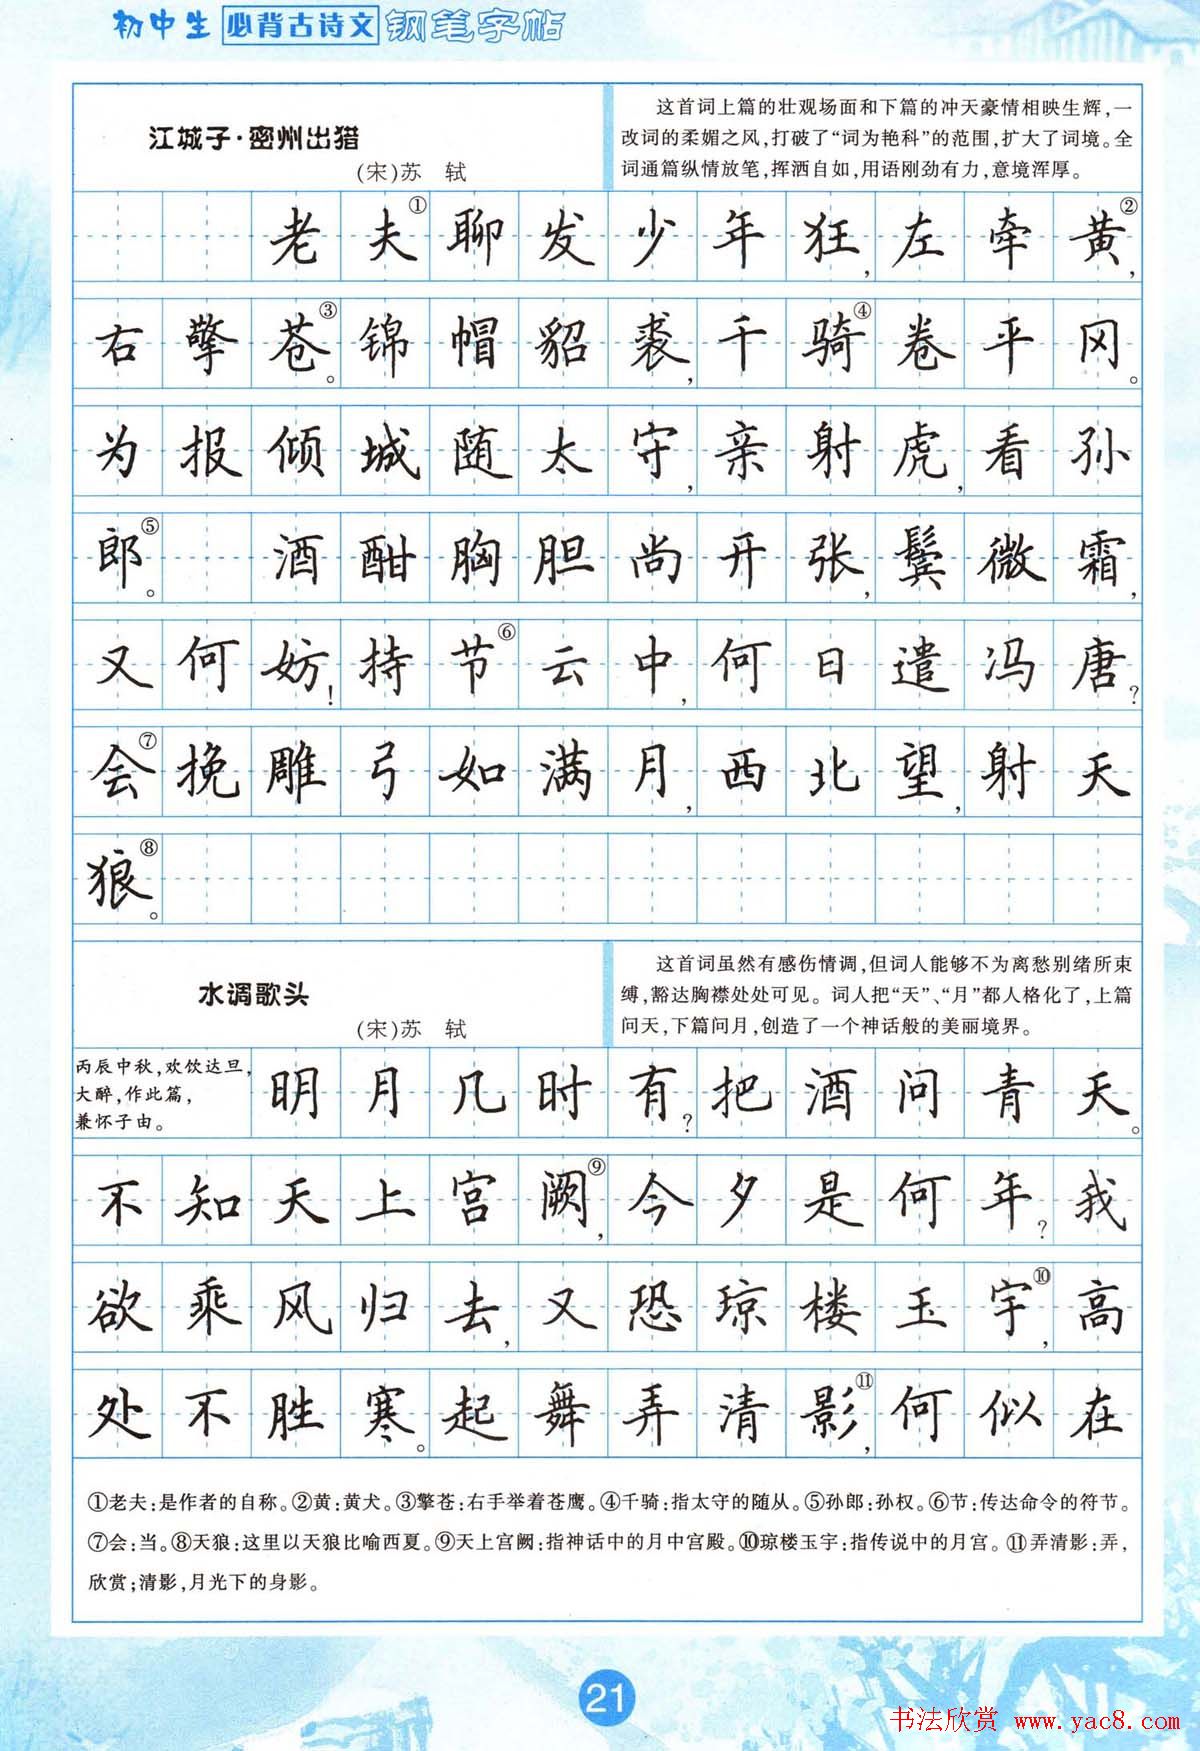 初中生必背古诗文钢笔字帖
江城子·密州出猎
(宋)苏 轼
这首词上篇的壮观场面和下篇的冲天豪情相映生辉,一
改词的柔媚之风,打破了“词为艳科”的范围,扩大了词境。全
词通篇纵情放笔,挥洒自如,用语刚劲有力,意境浑厚。
老夫①聊发少年狂,左牵黄②,
右擎苍③。锦帽貂裘,千骑④卷平冈。
为报倾城随太守,亲射虎,看孙
郎⑤。 酒酣胸胆尚开张,鬓微霜,
又何妨!持节⑥云中,何日遣冯唐?
会⑦挽雕弓如满月,西北望,射天
狼⑧。
水调歌头
(宋)苏 轼
这首词虽然有感伤情调,但词人能够不为离愁别绪所束
缚,豁达胸襟处处可见。词人把“天”、“月”都人格化了,上篇
问天,下篇问月,创造了一个神话般的美丽境界。
丙辰中秋,欢饮达旦,
大醉,作此篇,
兼怀子由。
明月几时有?把酒问青天。
不知天上宫阙⑨,今夕是何年?我
欲乘风归去,又恐琼楼玉宇⑩,高
处不胜寒。起舞弄清影⑪,何似在
①老夫:是作者的自称。②黄:黄犬。③擎苍:右手举着苍鹰。④千骑:指太守的随从。⑤孙郎:孙权。⑥节:传达命令的符节。
⑦会:当。⑧天狼:这里以天狼比喻西夏。⑨天上宫阙:指神话中的月中宫殿。⑩琼楼玉宇:指传说中的月宫。⑪弄清影:弄,
欣赏;清影,月光下的身影。
21
书法欣赏 www.yac8.com